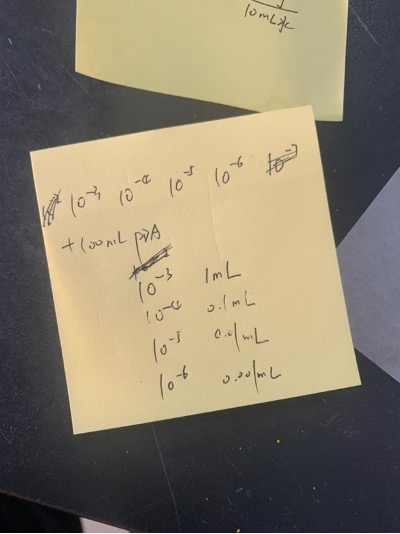 10mL水
10⁻³ 10⁻⁴ 10⁻⁵ 10⁻⁶ 10⁻⁷
+100mL PDA
10⁻³ 1mL
10⁻⁴ 0.1mL
10⁻⁵ 0.01mL
10⁻⁶ 0.001mL